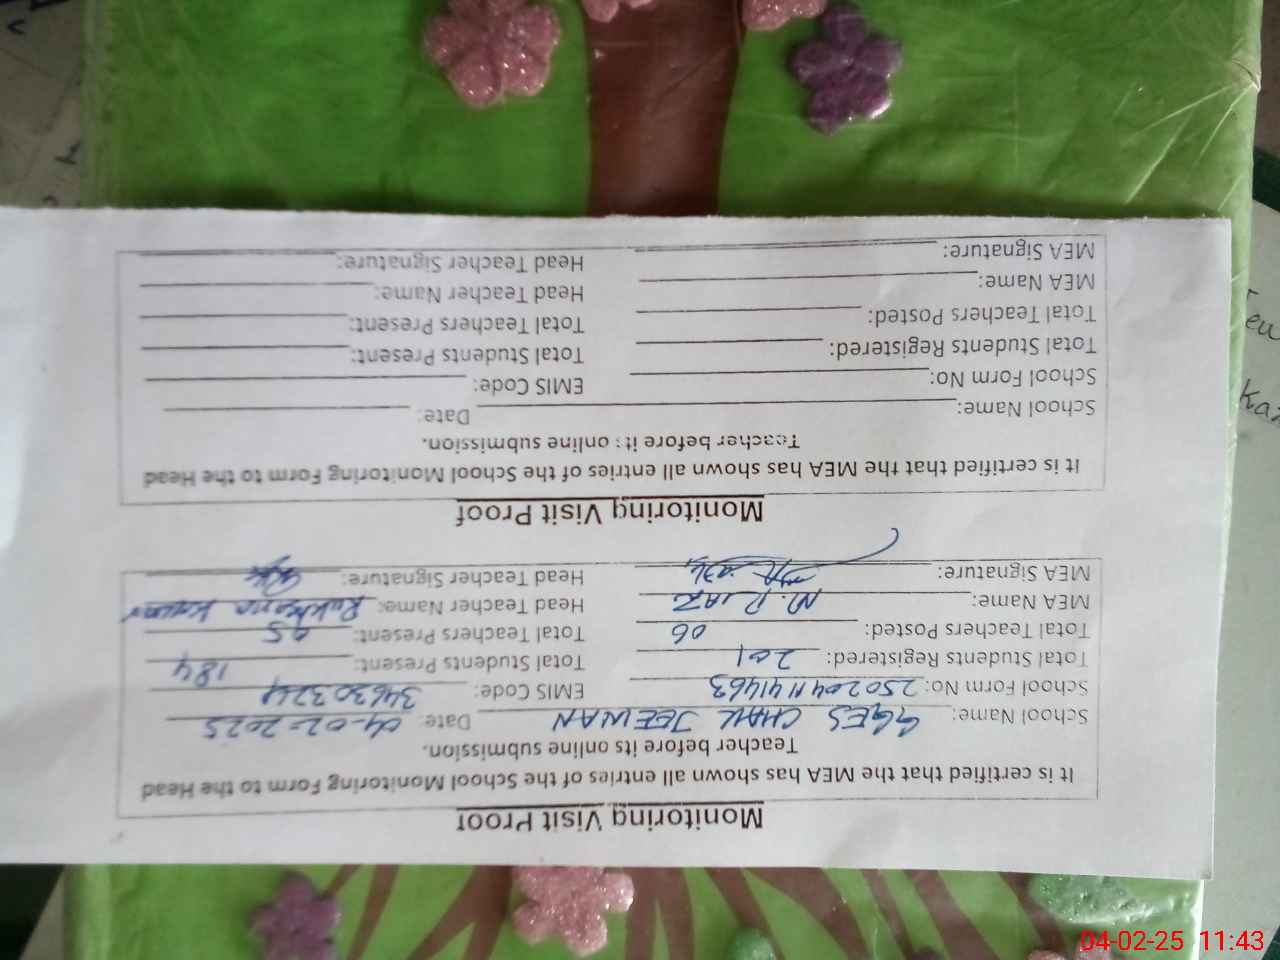 Monitoring Visit Proof
It is certified that the MEA has shown all entries of the School Monitoring Form to the Head
Teacher before its online submission.
School Name: GGES CHAK JEEWAN Date: 04-02-2025
School Form No: 250204141463 EMIS Code: 34630324
Total Students Registered: 201 Total Students Present: 184
Total Teachers Posted: 06 Total Teachers Present: 05
MEA Name: M. RIAZ Head Teacher Name: Rukhsana
MEA Signature: Head Teacher Signature:
Monitoring Visit Proof
It is certified that the MEA has shown all entries of the School Monitoring Form to the Head
Teacher before it : online submission.
School Name: Date:
School Form No: EMIS Code:
Total Students Registered: Total Students Present:
Total Teachers Posted: Total Teachers Present:
MEA Name: Head Teacher Name:
MEA Signature: Head Teacher Signature:
04-02-25 11:43